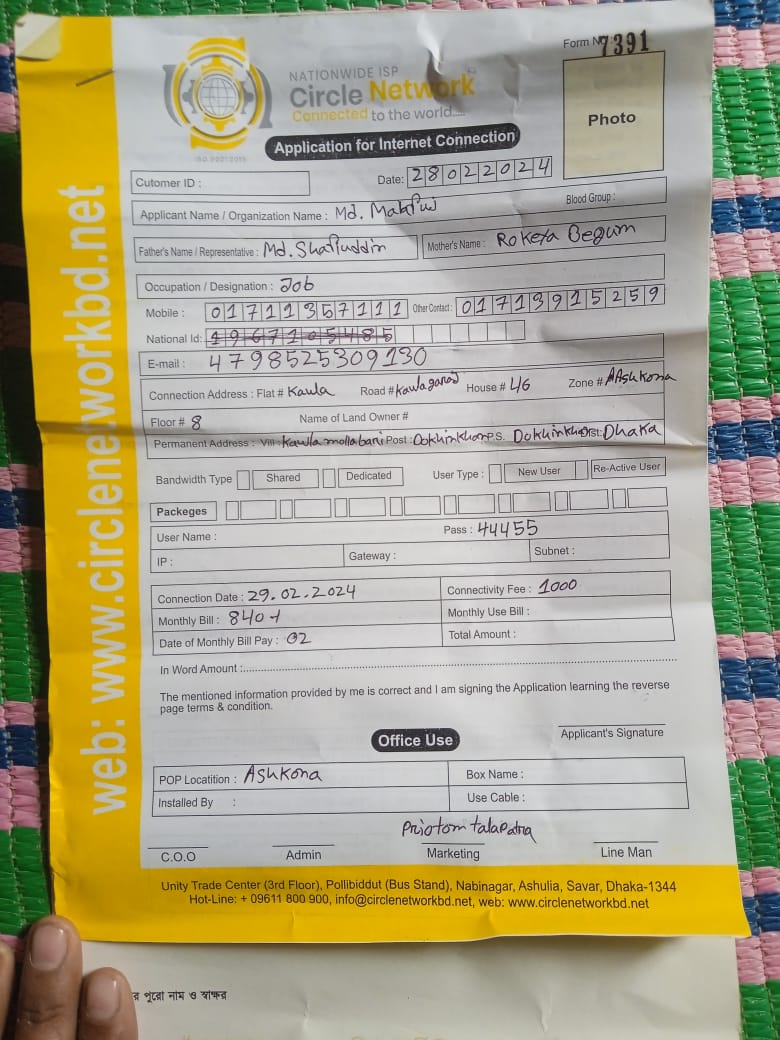 Form No 7391
NATIONWIDE ISP
Circle Network
Connected to the world....
ISO 9001:2015
Application for Internet Connection
Photo
Cutomer ID :
Date: 28022024
Applicant Name / Organization Name : Md. Blood Group :
Father's Name / Representative : Md. Shafiuddin Mother's Name : Rokeya Begum
Occupation / Designation : Job
Mobile : 01711357111 Other Contact : 01713915259
National Id: 1967105485
E-mail : 4798525309130
Connection Address : Flat # Kawla Road # House # 46 Zone # Ashkona
Floor # 8 Name of Land Owner #
Permanent Address : Vill : Kawla mollabari Post : Dokhinkhan P.S. Dokhinkhan Dist: Dhaka
Bandwidth Type Shared Dedicated User Type : New User Re-Active User
Packeges
User Name : Pass : 44455
IP : Gateway : Subnet :
Connection Date : 29.02.2024 Connectivity Fee : 1000
Monthly Bill : 840 Monthly Use Bill :
Date of Monthly Bill Pay : 02 Total Amount :
In Word Amount :
The mentioned information provided by me is correct and I am signing the Application learning the reverse
page terms & condition.
Applicant's Signature
Office Use
POP Locatition : Ashkona Box Name :
Installed By : Use Cable :
Priotom talapatra
C.O.O Admin Marketing Line Man
Unity Trade Center (3rd Floor), Pollibiddut (Bus Stand), Nabinagar, Ashulia, Savar, Dhaka-1344
Hot-Line: + 09611 800 900, info@circlenetworkbd.net, web: www.circlenetworkbd.net
web: www.circlenetworkbd.net
র পুরো নাম ও স্বাক্ষর